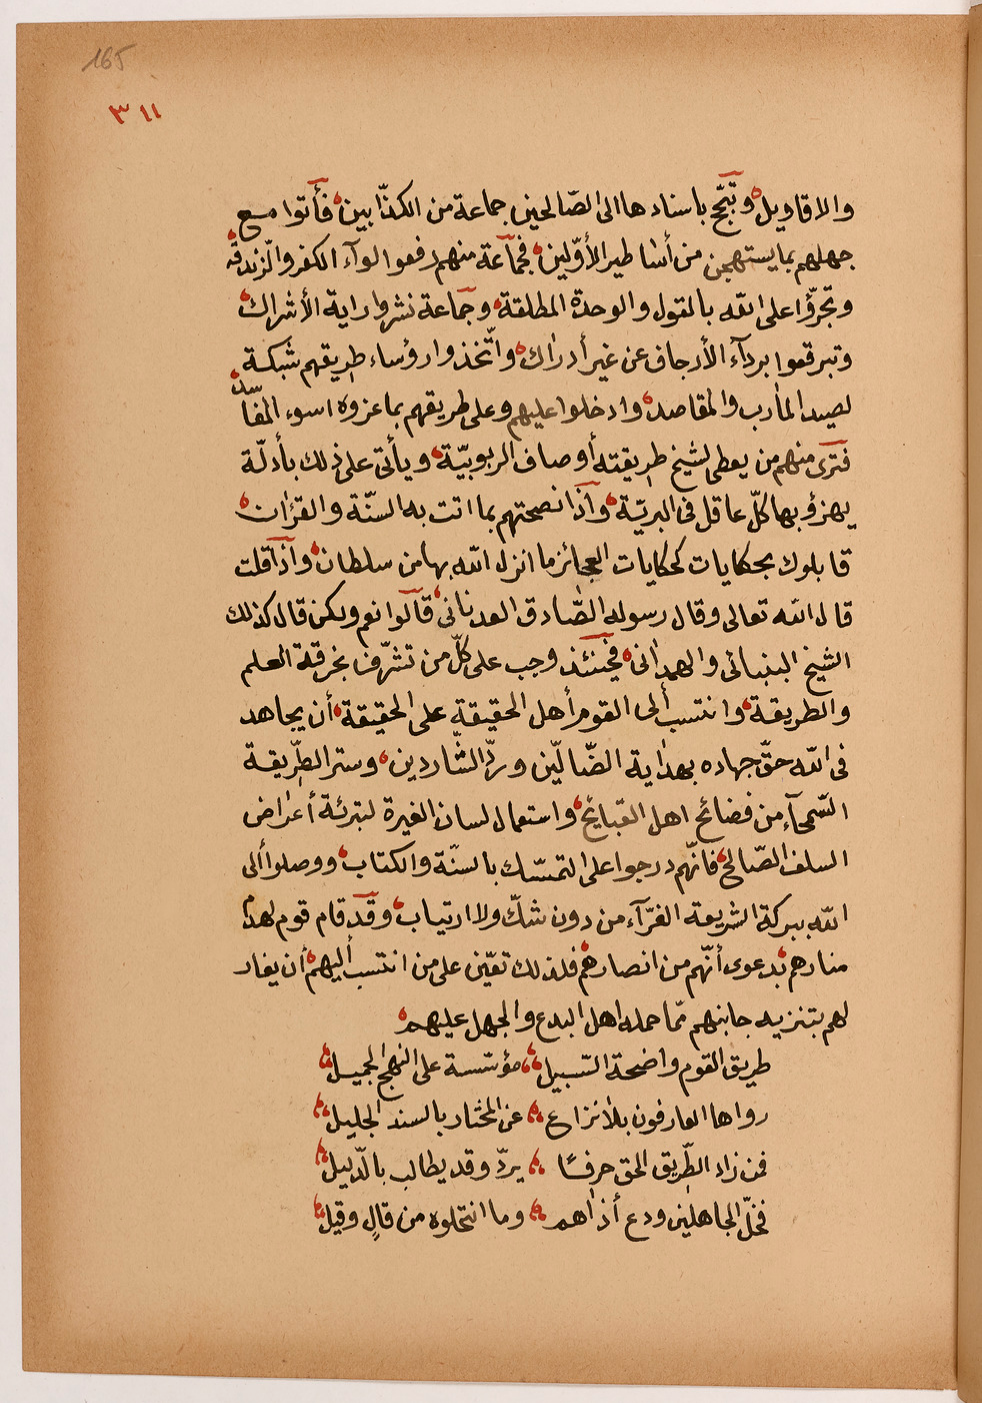 165
٣١١
والاقاويل وتبجّح باسنادها الى الصّالحين جماعة من الكذّابين فأتوا مع
جهلهم بما يستهجن من أساطير الأوّلين فجماعة منهم رفعوا لوآء الكفر والزندقة
وتجرؤّا على الله بالقول والوحدة المطلقة وجماعة نشروا راية الأشراك
وتبرقعوا بردآء الأرجاف عن غير أدراك واتّخذوا رؤساء طريقهم شبكة
لصيد المأرب والمقاصد وادخلوا عليهم وعلى طريقهم بما عزوه اسوء المفاسد
فترى منهم من يعطى لشيخ طريقته أوصاف الربوبيّة ويأتى على ذلك بأدلّة
يهزؤ بها كلّ عاقل فى البريّة وآذا نصحتهم بما اتت به السنّة والقرأن
قابلوك بحكايات كحكايات العجائز ما انزل الله بها من سلطان وآذا قلت
قال الله تعالى وقال رسوله الصّادق العدنانى قالوا نعم ولكن قال كذلك
الشيخ البنبانى والهمدانى فحينئذ وجب على كلّ من تشرّف بخرقة العلم
والطريقة وانتسب ألى القوم أهل الحقيقة على الحقيقة أن يجاهد
فى الله حقّ جهاده بهداية الضّالّين وردّ الشّاردين وستر الطّريقة
السّمحآء من فضائح اهل القبايح واستعمال لسان الغيرة لتبرئة أعراض
السلف الصّالح فانّهم درجوا على التمسّك بالسنّة والكتاب ووصلوا ألى
الله ببركة الشريعة الغرّآء من دون شكّ ولا ارتياب وقد قام قوم لهدم
منارهم بدعوى أنّهم من انصارهم فلذلك تعيّن على من انتسب أليهم أن يغار
لهم بتنزيه جابنهم ممّا حمله اهل البدع والجهل عليهم
طريق القوم واضحة السّبيل مؤسّسة على النهج الجميل
رواها العارفون بلا نزاع عن المختار بالسند الجليل
فمن زاد الطّريق الحق حرفًا يردّ وقد يطالب بالدّليل
فخلّ الجاهلين ودع أذاهم وما انتحلوه من قالٍ وقيل